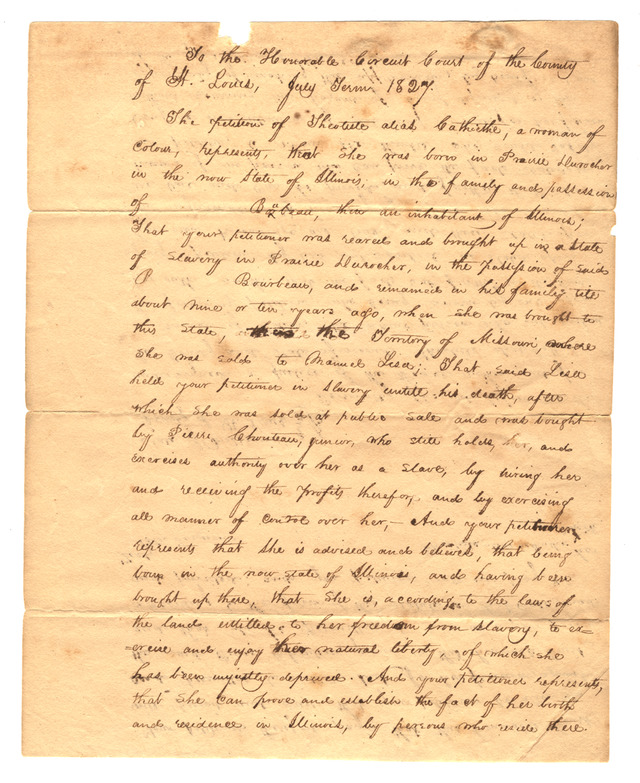 To the Honorable Circuit Court of the County
of St. Louis, July Term 1827.
The petition of Theotiste alias Catiche, a woman of
Colour, represents, that she was born in Prairie Durocher
in the now State of Illinois, in the family and possession
of Barbeau, then an inhabitant of Illinois;
That your petitioner was reared and brought up in a State
of Slavery in Prairie Durocher, in the possession of said
P Bourbeau, and remained in his family till
about nine or ten years ago, when she was brought to
this State, then the Territory of Missouri, where
she was sold to Manuel Lisa; That said Lisa
held your petitioner in slavery untill his death, after
which she was sold at public sale and was bought
by Pierre Chouteau, junior, who still holds, her, and
exercises authority over her as a slave, by hiring her
and receiving the profits therefor, and by exercising
all manner of control over her,— And your petitioner
represents that she is advised and believes, that being
born in the now state of Illinois, and having been
brought up there, that she is, according to the laws of
the land entitled to her freedom from slavery, to ex=
=ercise and enjoy her natural liberty of which she
has been unjustly deprived. And your petitioner represents,
that she can prove and establish the fact of her birth
and residence in Illinois, by persons who reside there.